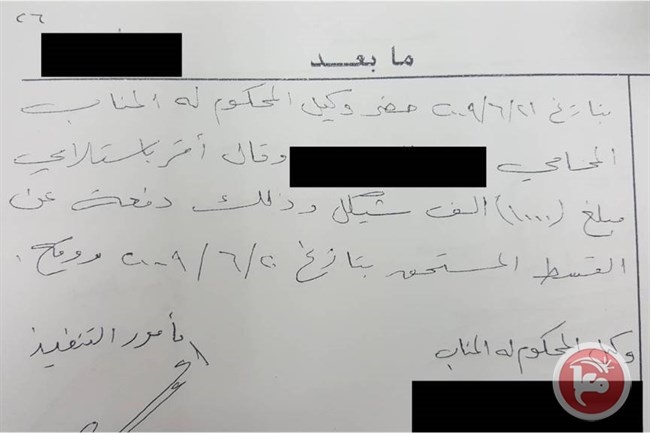 ٢٦
ما بعد
بتاريخ ٢٠٠٩/٦/٢١ حضر وكيل المحكوم له المناب
المحامي وقال أقر باستلامي
مبلغ (١٠٠٠) الف شيكل وذلك دفعة عن
القسط المستحق بتاريخ ٢٠٠٩/٦/٢٠ ووقع.
مأمور التنفيذ
وكيل المحكوم له المناب
معا